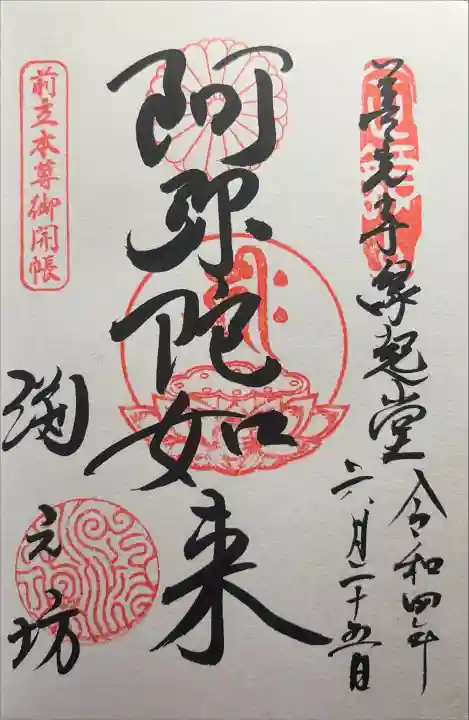 善光寺縁起堂
令和四年
六月二十五日
阿弥陀如来
前立本尊御開帳
淵
元坊